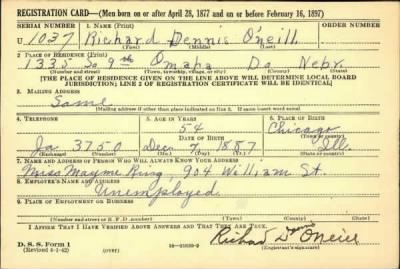 REGISTRATION CARD—(Men born on or after April 28, 1877 and on or before February 16, 1897)
SERIAL NUMBER 1. NAME (Print) ORDER NUMBER
U 1037 Richard Dennis O'neill
(First) (Middle) (Last)
2. PLACE OF RESIDENCE (Print)
1335 So 9th Omaha Do Nebr.
(Number and street) (Town, township, village, or city) (County) (State)
[THE PLACE OF RESIDENCE GIVEN ON THE LINE ABOVE WILL DETERMINE LOCAL BOARD
JURISDICTION; LINE 2 OF REGISTRATION CERTIFICATE WILL BE IDENTICAL]
3. MAILING ADDRESS
Same
[Mailing address if other than place indicated on line 2. If same insert word same]
4. TELEPHONE 5. AGE IN YEARS 6. PLACE OF BIRTH
54 Chicago
DATE OF BIRTH (Town or county)
Ja 3750 Dec 7, 1887 Ill.
(Exchange) (Number) (Mo.) (Day) (Yr.) (State or country)
7. NAME AND ADDRESS OF PERSON WHO WILL ALWAYS KNOW YOUR ADDRESS
Miss Mayme King, 904 William St.
8. EMPLOYER'S NAME AND ADDRESS
Unemployed
9. PLACE OF EMPLOYMENT OR BUSINESS
(Number and street or R. F. D. number) (Town) (County) (State)
I AFFIRM THAT I HAVE VERIFIED ABOVE ANSWERS AND THAT THEY ARE TRUE.
D. S. S. Form 1 Richard Dennis O'Neill
(Revised 4-1-42) (over) (Registrant's signature)